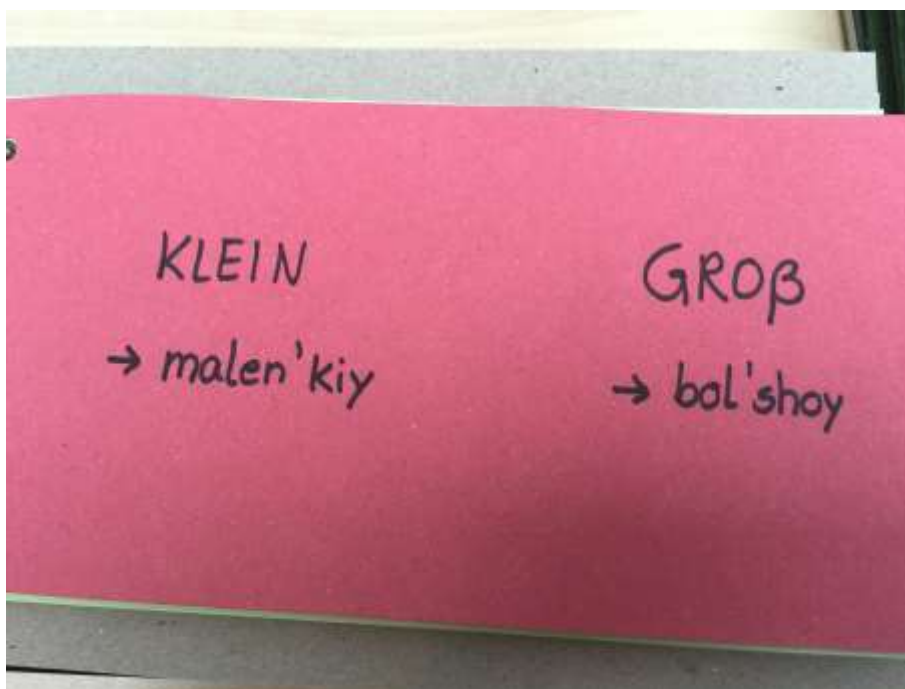 KLEIN
→ malen'kiy
GROß
→ bol'shoy